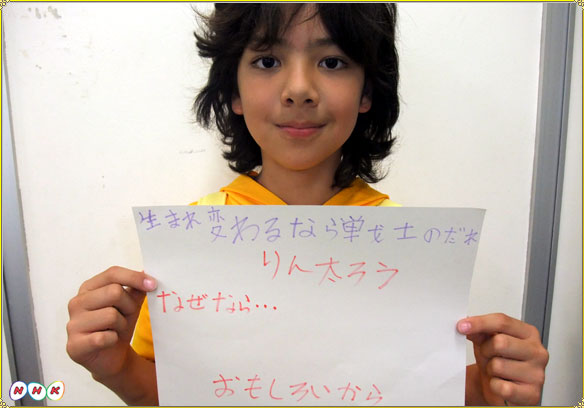 生まれ変わるなら戦士のだれ
りん太ろう
なぜなら・・・
おもしろいから
NHK